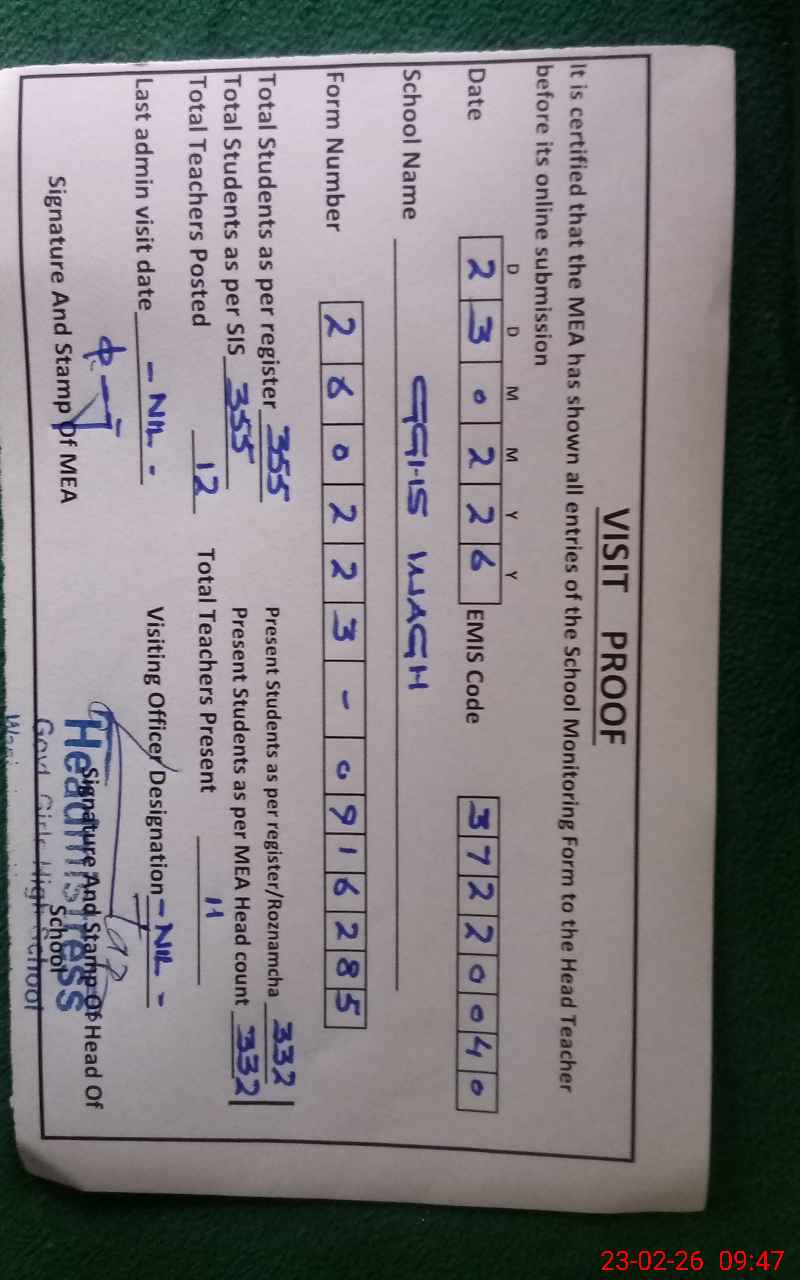 VISIT PROOF
It is certified that the MEA has shown all entries of the School Monitoring Form to the Head Teacher
before its online submission
D D M M Y Y
Date 2 3 0 2 2 6 EMIS Code 3 7 2 2 0 0 4 0
School Name GGHS WAGH
Form Number 2 6 0 2 2 3 - 0 9 1 6 2 8 5
Total Students as per register 355 Present Students as per register/Roznamcha 332
Total Students as per SIS 355 Present Students as per MEA Head count 332
Total Teachers Posted 12 Total Teachers Present 11
Last admin visit date - NIL - Visiting Officer Designation - NIL -
Signature And Stamp Of MEA Signature And Stamp Of Head Of
School
Headmistress
Govt. Girls High School
23-02-26 09:47